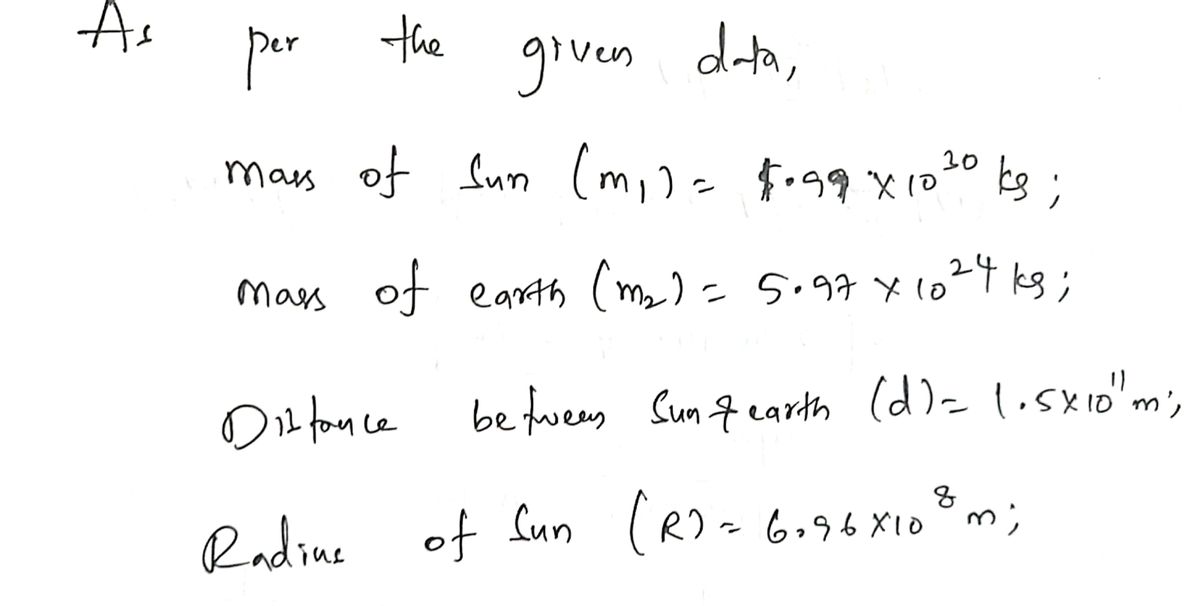 As per the given data,
mass of Sun (m₁) = 1.99 × 10³⁰ kg;
mass of earth (m₂) = 5.97 × 10²⁴ kg;
Distance between Sun & earth (d) = 1.5×10¹¹ m;
Radius of Sun (R) = 6.96 ×10⁸ m;